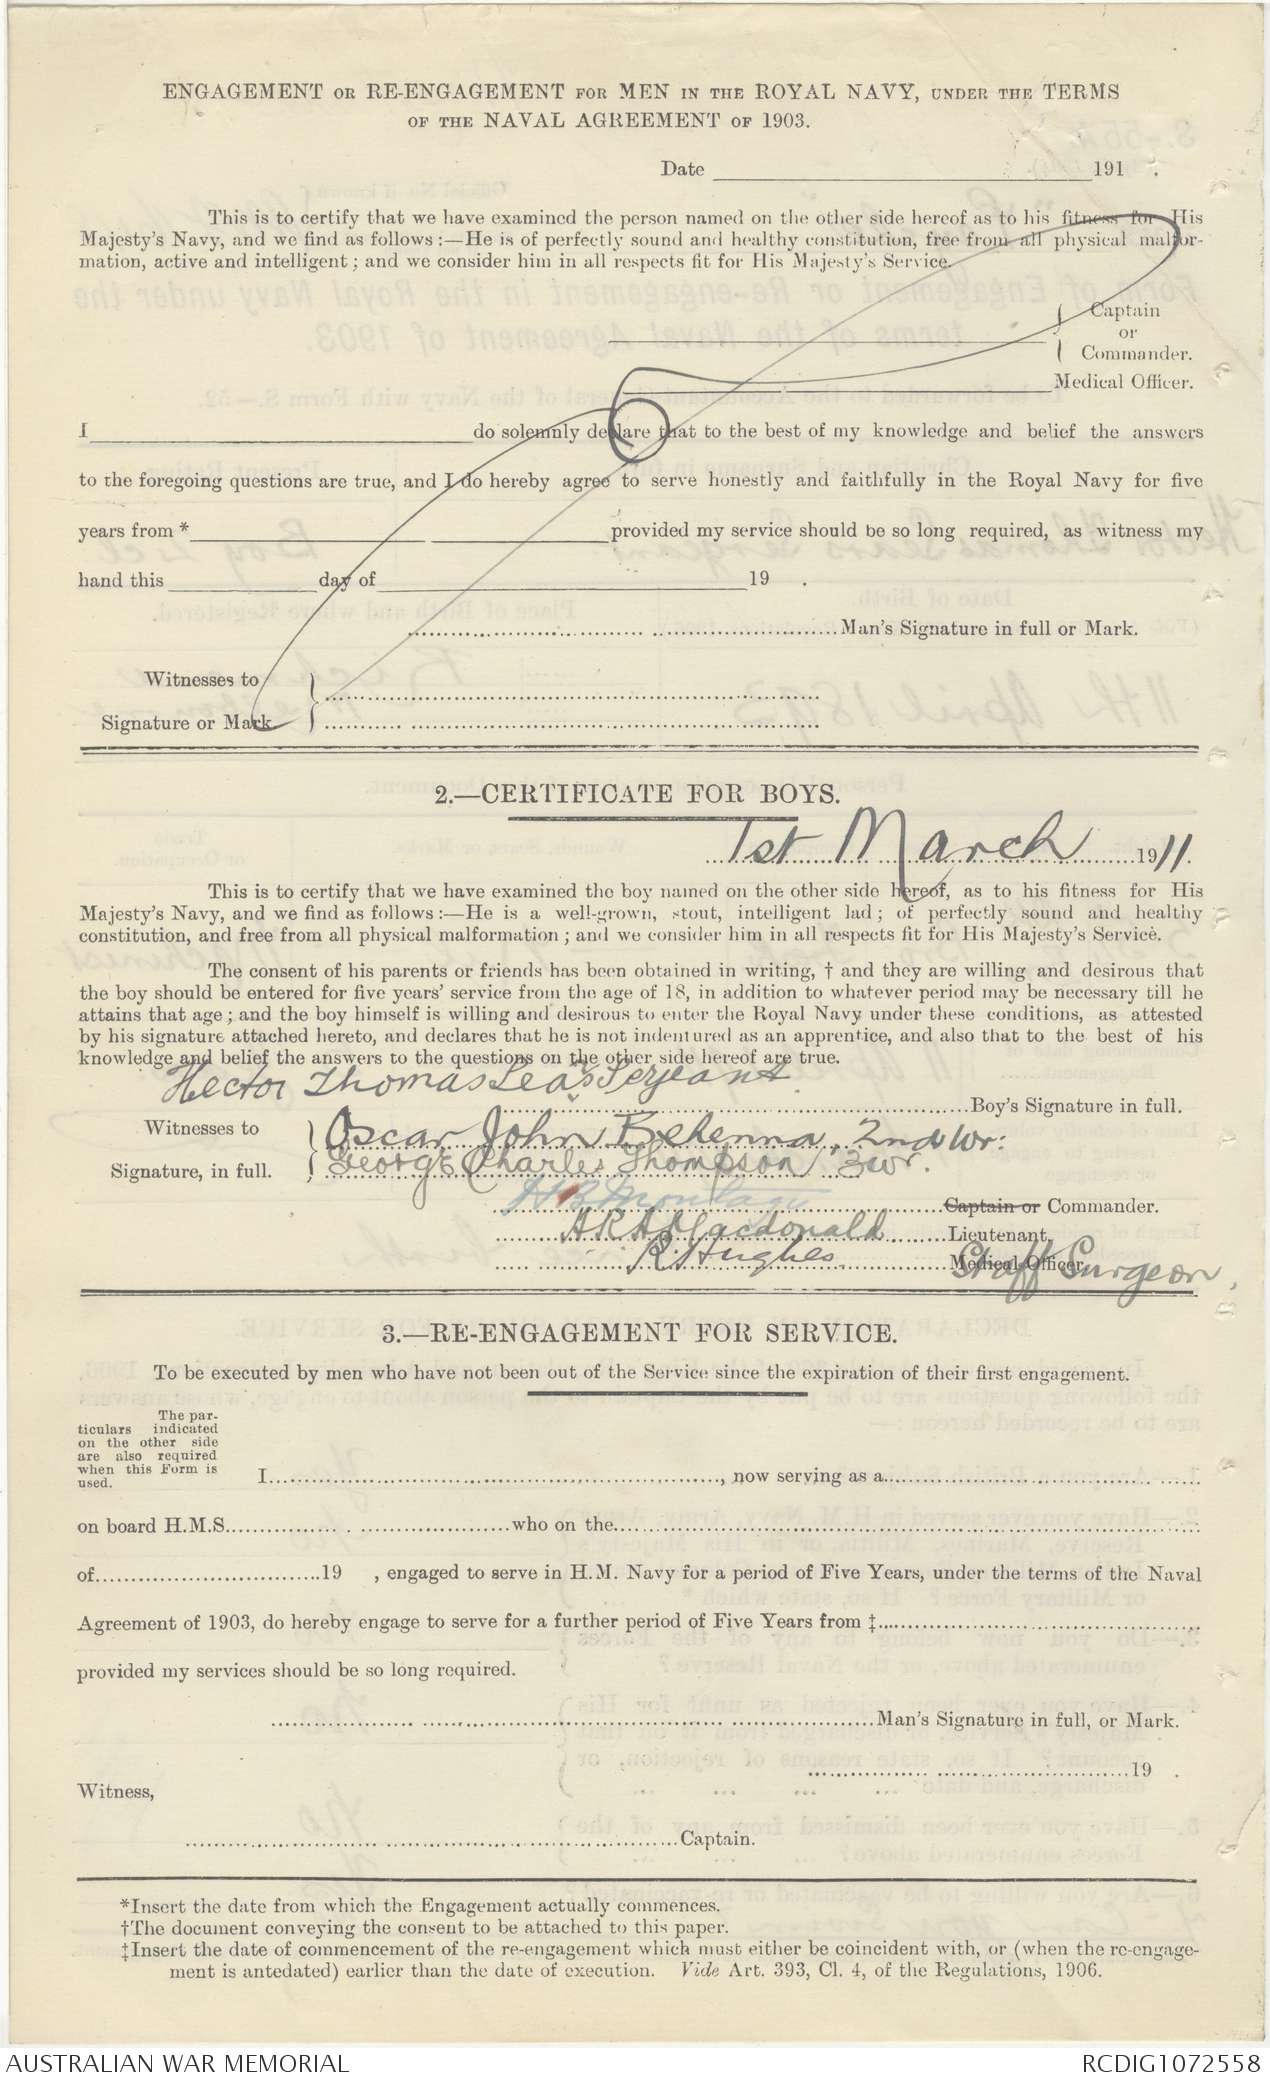 ENGAGEMENT OR RE-ENGAGEMENT FOR MEN IN THE ROYAL NAVY, UNDER THE TERMS
OF THE NAVAL AGREEMENT OF 1903.
Date 191 .
This is to certify that we have examined the person named on the other side hereof as to his fitness for His
Majesty's Navy, and we find as follows :—He is of perfectly sound and healthy constitution, free from all physical malfor-
mation, active and intelligent ; and we consider him in all respects fit for His Majesty's Service.
Captain
or
Commander.
Medical Officer.
I do solemnly declare that to the best of my knowledge and belief the answers
to the foregoing questions are true, and I do hereby agree to serve honestly and faithfully in the Royal Navy for five
years from * provided my service should be so long required, as witness my
hand this day of 19 .
Man's Signature in full or Mark.
Witnesses to
Signature or Mark
2.—CERTIFICATE FOR BOYS.
1st March 1911.
This is to certify that we have examined the boy named on the other side hereof, as to his fitness for His
Majesty's Navy, and we find as follows :—He is a well-grown, stout, intelligent lad ; of perfectly sound and healthy
constitution, and free from all physical malformation ; and we consider him in all respects fit for His Majesty's Service.
The consent of his parents or friends has been obtained in writing, † and they are willing and desirous that
the boy should be entered for five years' service from the age of 18, in addition to whatever period may be necessary till he
attains that age ; and the boy himself is willing and desirous to enter the Royal Navy under these conditions, as attested
by his signature attached hereto, and declares that he is not indentured as an apprentice, and also that to the best of his
knowledge and belief the answers to the questions on the other side hereof are true.
Hector Thomas Sears Serjeant
Boy's Signature in full.
Witnesses to
Oscar John Behenna, 2nd Wr:
Signature, in full. George Charles Thompson 3 Wr.
H B Montagu Captain or Commander.
A R A Macdonald Lieutenant,
R. Hughes Medical Officer. Staff Surgeon,
3.—RE-ENGAGEMENT FOR SERVICE.
To be executed by men who have not been out of the Service since the expiration of their first engagement.
The par-
ticulars indicated
on the other side
are also required
when this Form is
used.
I, now serving as a
on board H.M.S. who on the
of 19 , engaged to serve in H.M. Navy for a period of Five Years, under the terms of the Naval
Agreement of 1903, do hereby engage to serve for a further period of Five Years from ‡
provided my services should be so long required.
Man's Signature in full, or Mark.
19 .
Witness,
Captain.
*Insert the date from which the Engagement actually commences.
†The document conveying the consent to be attached to this paper.
‡Insert the date of commencement of the re-engagement which must either be coincident with, or (when the re-engage-
ment is antedated) earlier than the date of execution. Vide Art. 393, Cl. 4, of the Regulations, 1906.
AUSTRALIAN WAR MEMORIAL
RCDIG1072558